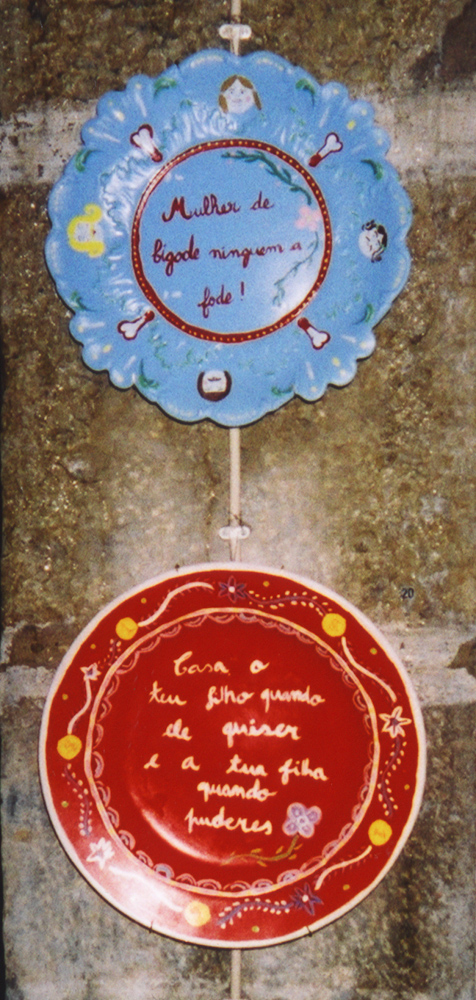 Mulher de
bigode ninguem a
fode!
20
Casa o
teu filho quando
ele quiser
e a tua filha
quando
puderes